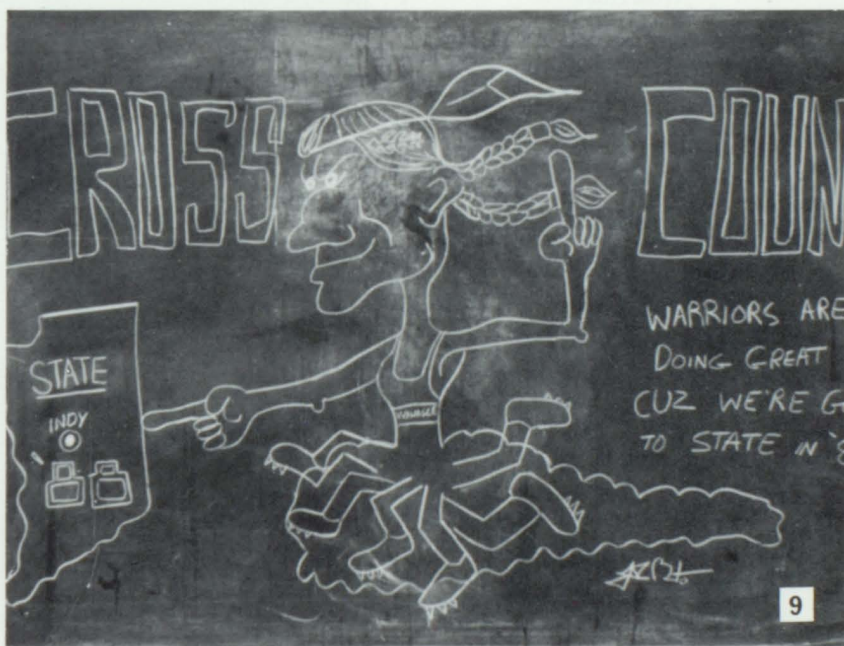 CROSS COUN
STATE
INDY
WARRIORS ARE
DOING GREAT
CUZ WE'RE G
TO STATE IN '8
9